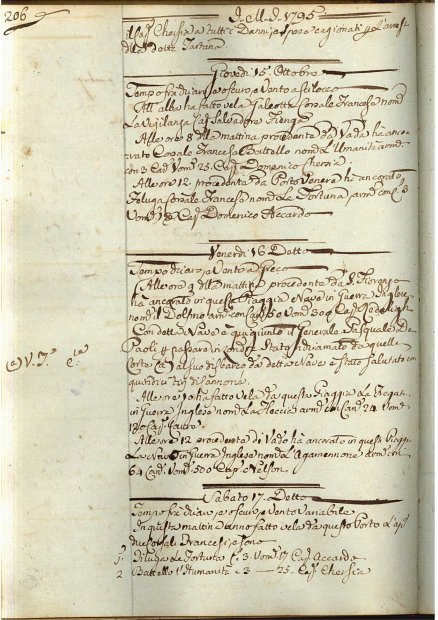 206
J. M. J. 1795
il Cap. Chersia da tutti i Danni, e spese cagionati per l'arresto
della dotta Tartana
Giovedì 15 Ottobre
Tempo fra chiaro, e oscuro, e Vento a scilocco
All'alba ha fatto vela Galeotta Corsale Francesa nom.
La Vigilanza Cap. Salvadore
Alle ore 8 della mattina procedente da Vado ha anco-
rato Corsale Francesa Battello nom. L'Umanità arm.
con 3 Can. Vom. 25. Cap. Domenico Chersia
Alle ore 12. procedente da Porto Venere ha ancorato
Feluga Corsale Francesa nom. La Fortuna, arm. con C. 3
Vom. Cap. Domenico Accardo
Venerdì 16 Detto
Tempo chiaro, e Vento a Greco
Alle ore 9 della mattina procedente da S. Fiorenzo
ha ancorato in questa Piaggia Nave in Guerra Inglese
nom. il Dolfino arm. con Can. 50 Vom. 300 Cap.
Con detta Nave è qui giunto il Generale Pasquale De
Paoli per passare in Londra Stato chiamato da quella
Corte (a) al suo disbarco da detta Nave è stato salutato con
quindici tiri di Cannone.
(a) V. J.
Alle ore 10 ha fatto vela da questa Piaggia La Fregata
in Guerra Inglese nom. La Fleccia arm. con Can. 24 Vom.
130 Cap.
Alle ore 12 procedente di Vado ha ancorato in questa Piaggia
La Nave in Guerra Inglese nom. La Agamennone arm. con
64 Can. Vom. 500 Cap. Nelson.
Sabato 17. Detto
Tempo fra chiaro, e oscuro, e Vento Variabile
In questa mattina anno fatto vela da questo Porto
due Corsali Francesi, e sono
1. Feluga La Fortuna C. 3 Vom. 17 Cap. Accardo
2 Battello l'Umanità C. 3 — 25. Cap. Chersia